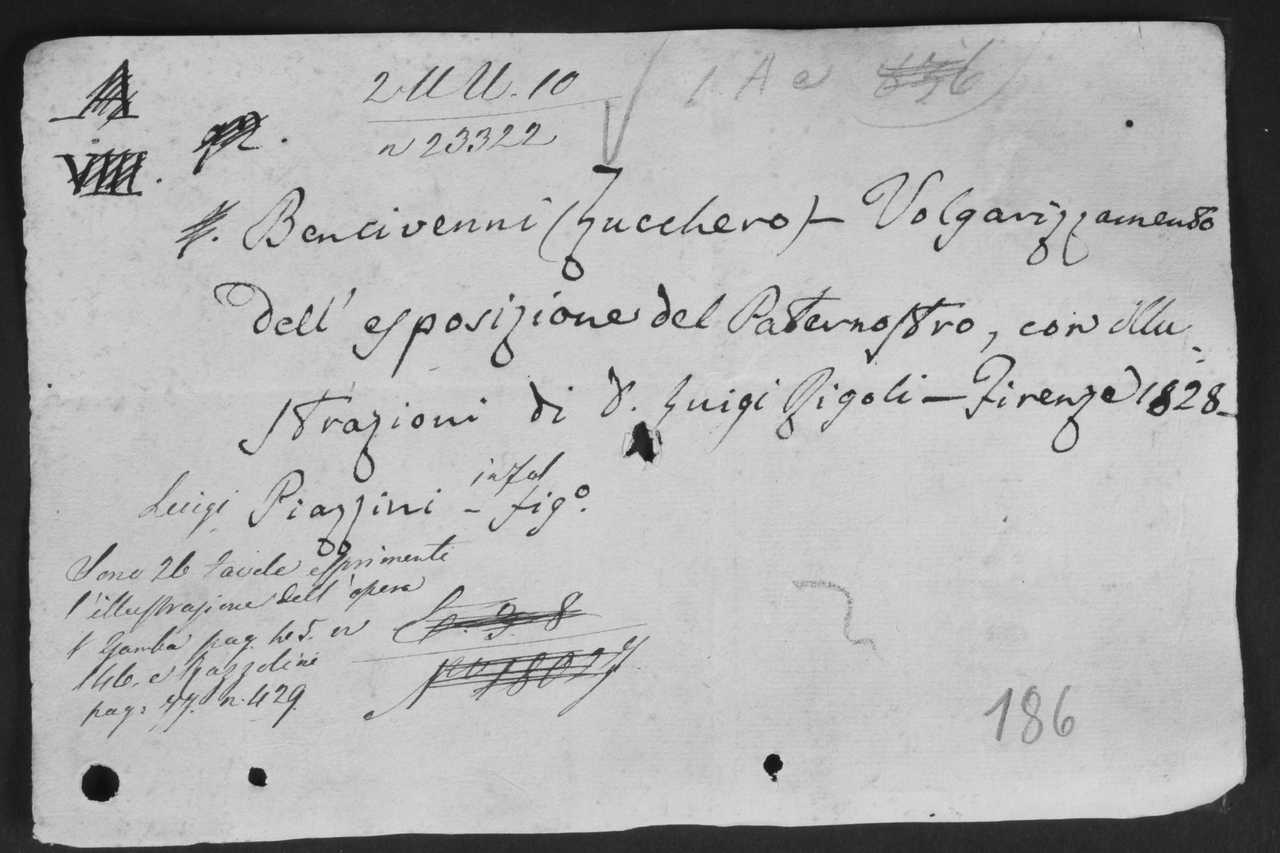 2 U U. 10
n 23322
1. A a
Bencivenni (Zucchero) – Volgarizzamento
dell' esposizione del Paternostro, con illu-
strazioni di D. Luigi Rigoli – Firenze 1828 –
in fol
Luigi Piazzini – fig.º
Sono 26 tavole esprimenti
l'illustrazione dell' opera
Gamba pag.
146. e Razzolini
pag: 77. n. 429.
186